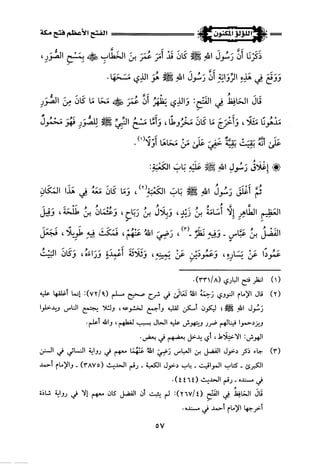 اللؤلؤ المكنون
الفتح الأعظم فتح مكة
ذَكَرْنَا أَنَّ رَسُولَ اللهِ ﷺ كَانَ قَدْ أَمَرَ عُمَرَ بنَ الخَطَّابِ ﷺ بِمَسْحِ الصُّوَرِ،
وَوَقَعَ فِي هَذِهِ الرِّوَايَةِ أَنَّ رَسُولَ اللهِ ﷺ هُوَ الذِي مَسَحَهَا.
قَالَ الحَافِظُ فِي الفَتْحِ: وَالذِي يَظْهَرُ أَنَّ عُمَرَ ﷺ مَحَا مَا كَانَ مِنَ الصُّوَرِ
مَدْهُونًا مَثَلًا، وَأَخْرَجَ مَا كَانَ مَخْرُوطًا، وَأَمَّا مَسْحُ النَّبِيِّ ﷺ لِلصُّوَرِ فَهُوَ مَحْمُولٌ
عَلَى أَنَّهُ بَقِيَتْ بَقِيَّةٌ خَفِيَ عَلَى مَنْ مَحَاهَا أَوَّلًا(١).
إِغْلَاقُ رَسُولِ اللهِ ﷺ عَلَيْهِ بَابَ الكَعْبَةِ:
ثُمَّ أَغْلَقَ رَسُولُ اللهِ ﷺ بَابَ الكَعْبَةِ(٢)، وَمَا كَانَ مَعَهُ فِي هَذَا المَكَانِ
العَظِيمِ الطَّاهِرِ إِلَّا أُسَامَةُ بنُ زَيْدٍ، وَبِلَالُ بنُ رَبَاحٍ، وَعُثْمَانُ بنُ طَلْحَةَ، وَقِيلَ
الفَضْلُ بنُ عَبَّاسٍ - وَفِيهِ نَظَرٌ -(٣)، رَضِيَ اللهُ عَنْهُمْ، فَمَكَثَ فِيهِ طَوِيلًا، فَجَعَلَ
عَمُودًا عَنْ يَسَارِهِ، وَعَمُودَيْنِ عَنْ يَمِينِهِ، وَثَلَاثَةَ أَعْمِدَةٍ وَرَاءَهُ، وَكَانَ البَيْتُ
(١) انظر فتح الباري (٣٣١/٨).
(٢) قال الإمام النووي رَحِمَهُ اللهُ تَعَالَى في شرح صحيح مسلم (٧٢/٩): إنما أغلقها عليه
رَسُول اللهِ ﷺ؛ ليكون أسكن لقلبه وأجمع لخشوعه، ولئلا يجتمع الناس ويدخلوا
ويزدحموا فينالهم ضرر ويتهوش عليه الحال بسبب لغطهم، والله أعلم.
الهوش: الاختلاط، أي يدخل بعضهم في بعض.
(٣) جاء ذكر دخول الفضل بن العباس رَضِيَ اللهُ عَنْهُمَا معهم في رواية النسائي في السنن
الكبرى - كتاب المواقيت - باب دخول الكعبة - رقم الحديث (٣٨٧٥) - والإمام أحمد
في مسنده - رقم الحديث (٤٤٦٤).
قَالَ الحَافِظُ فِي الفَتْحِ (٢٦٧/٤): لم يثبت أن الفضل كان معهم إلا في رواية شاذة
أخرجها الإمام أحمد في مسنده.
٥٧